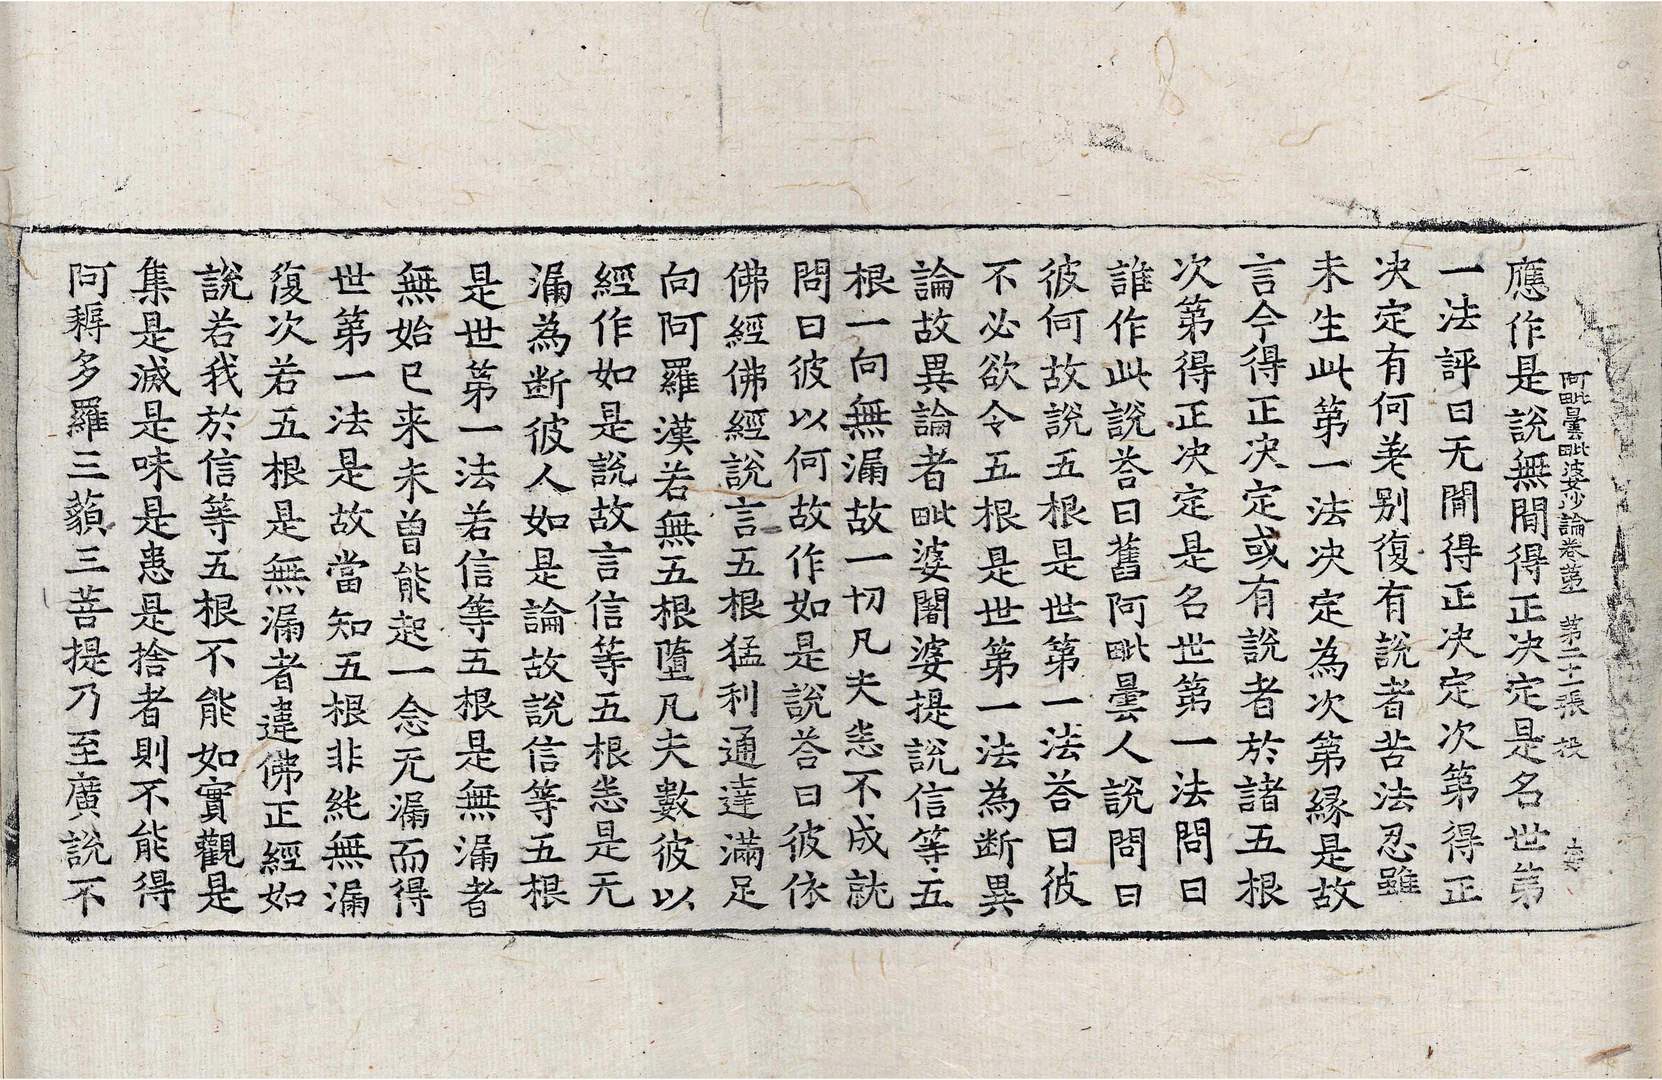 阿毗曇毗婆沙論卷第一 第二十一張 投
應作是說無閒得正决定是名世第
一法評曰无閒得正决定次第得正
决定有何差别復有說者苦法忍雖
未生此第一法决定為次第縁是故
言今得正决定或有說者於諸五根
次第得正决定是名世第一法問曰
誰作此說荅曰舊阿毗曇人說問曰
彼何故說五根是世第一法荅曰彼
不必欲令五根是世第一法為断異
論故異論者毗婆闍婆提說信等五
根一向無漏故一切凡夫恙不成就
問曰彼以何故作如是說荅曰彼依
佛經佛經說言五根猛利通達滿足
向阿羅漢若無五根墮凡夫數彼以
經作如是說故言信等五根恙是无
漏為断彼人如是論故說信等五根
是世第一法若信等五根是無漏者
無始已来未曽能起一念无漏而得
世第一法是故當知五根非純無漏
復次若五根是無漏者違佛正經如
說若我於信等五根不能如實觀是
集是滅是味是患是捨者則不能得
阿耨多羅三藐三菩提乃至廣說不